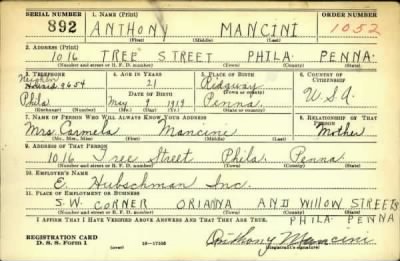 SERIAL NUMBER 1. NAME (Print) ORDER NUMBER
892 ANTHONY MANCINI 1052
(First) (Middle) (Last)
2. ADDRESS (Print)
1016 TREE STREET PHILA PENNA.
(Number and street or R. F. D. number) (Town) (County) (State)
3. TELEPHONE 4. AGE IN YEARS 5. PLACE OF BIRTH 6. COUNTRY OF CITIZENSHIP
9654 21 Ridgway
DATE OF BIRTH (Town or county)
Phila May 9 1919 Penna. U.S.A.
(Exchange) (Number) (Mo.) (Day) (Yr.) (State or country)
7. NAME OF PERSON WHO WILL ALWAYS KNOW YOUR ADDRESS 8. RELATIONSHIP OF THAT PERSON
Mrs. Carmela Mancini Mother
(Mr., Mrs., Miss) (First) (Middle) (Last)
9. ADDRESS OF THAT PERSON
1016 Tree Street Phila. Penna.
(Number and street or R. F. D. number) (Town) (County) (State)
10. EMPLOYER'S NAME
E. Hubschman Inc.
11. PLACE OF EMPLOYMENT OR BUSINESS
S.W. CORNER ORIANNA AND WILLOW STREETS
(Number and street or R. F. D. number) (Town) (County) (State)
PHILA PENNA
I AFFIRM THAT I HAVE VERIFIED ABOVE ANSWERS AND THAT THEY ARE TRUE.
REGISTRATION CARD
D. S. S. Form 1 (over) 16—17105 Anthony Mancini